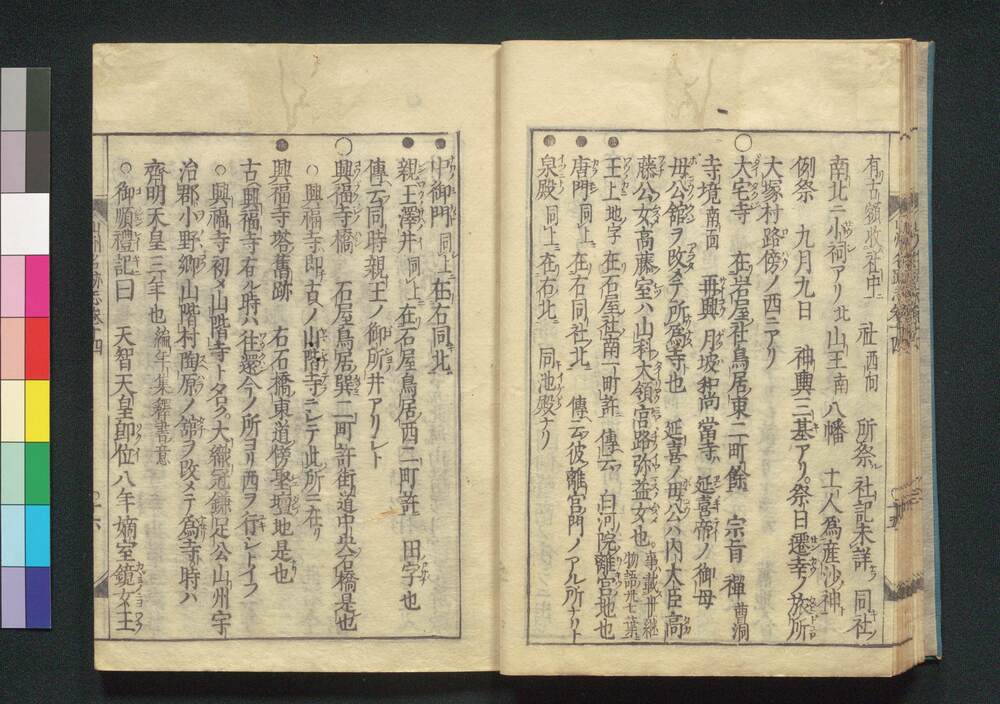 有テ古領收社中ニ　社 西向　所祭ル社記未詳　同社ノ
南北ニ小祠アリ北山王南八幡　土人為産沙ノ神ト
例祭　九月九日　神輿三基アリ祭ノ日遷幸ノ旅所
大塚村路傍ノ西ニアリ
大宅寺　在岩屋社鳥居ノ東二町餘　宗旨 禪 曹洞
寺境 南面　再興 月坡和尚 當寺ハ延喜帝ノ御母
母公館ヲ改メテ所為寺也　延喜ノ母公ハ内大臣高
藤公ノ女高藤ノ室ハ山科大領宮路弥益女メ也 事載世継物語卅七葉
王上地字　在石屋ノ社南一町許　傳云　白河院離宮地也
唐門 同上ニ 在右同社北ニ　傳云彼離宮門ノアル所ナリト
泉殿 同上ニ 在右北ニ　同池殿ナリ
中御門 同上ニ 在右同北ニ
親王澤井 同上ニ 在石屋鳥居ノ西二町許　田ノ字也
傳云同時親王ノ御所井アリシト
興福寺橋　石屋鳥居巽二町許街道中央石橋是也
○興福寺即古ノ山階寺ニシテ此所ニ在リ
興福寺塔舊跡　右石橋東道傍聖壇地是也
古ヘ興福寺有ル時ハ往還今ノ所ヨリ西ヲ行シトイフ
○興福寺初メ山階寺ト名ク大織冠鎌足公山州宇
治郡小野郷山階村陶原ノ館ヲ改メテ為寺ト時ハ
齊明天皇三年也 編年集釋書意
○御順禮記曰　天智天皇即位八年嫡室鏡女王